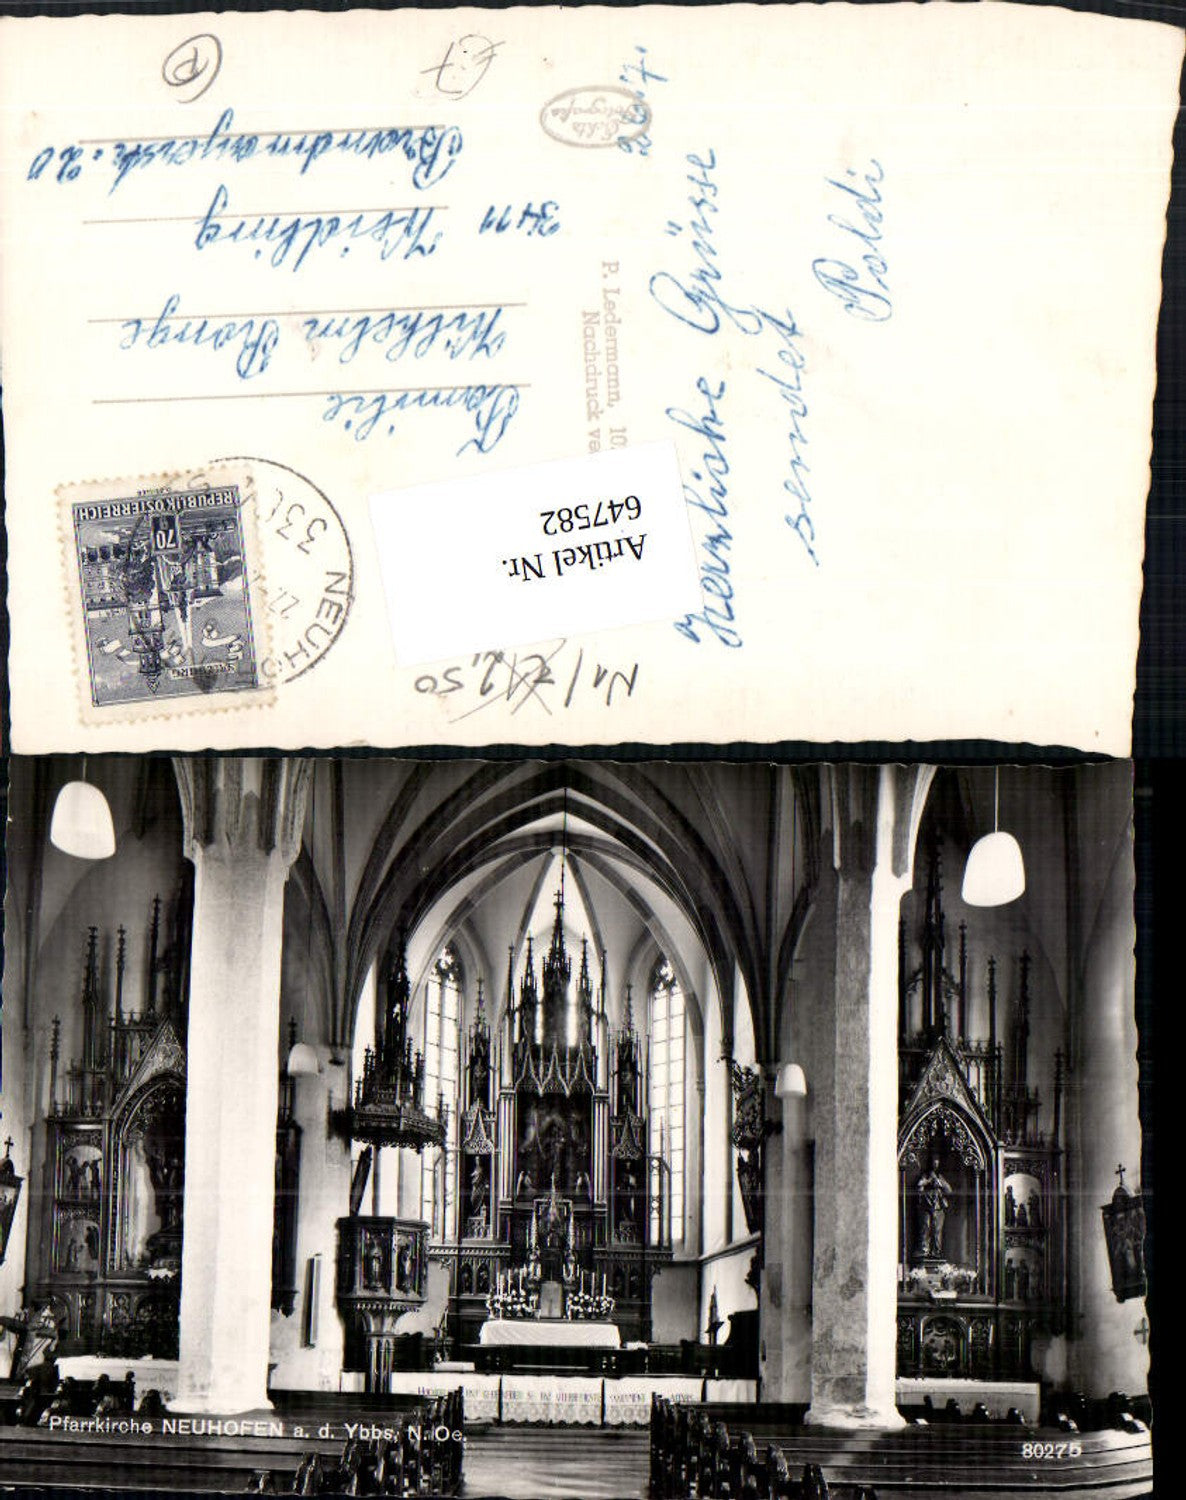 Herzliche Grüsse
sendet
Poldi
P. Ledermann, 10
Nachdruck ve
Artikel Nr.
647582
Familie
Wilhelm
3411 Weidling
20
REPUBLIK ÖSTERREICH
70
SALZBURG
NEUHO
2,50
P
Pfarrkirche NEUHOFEN a. d. Ybbs, N. Oe.
80275